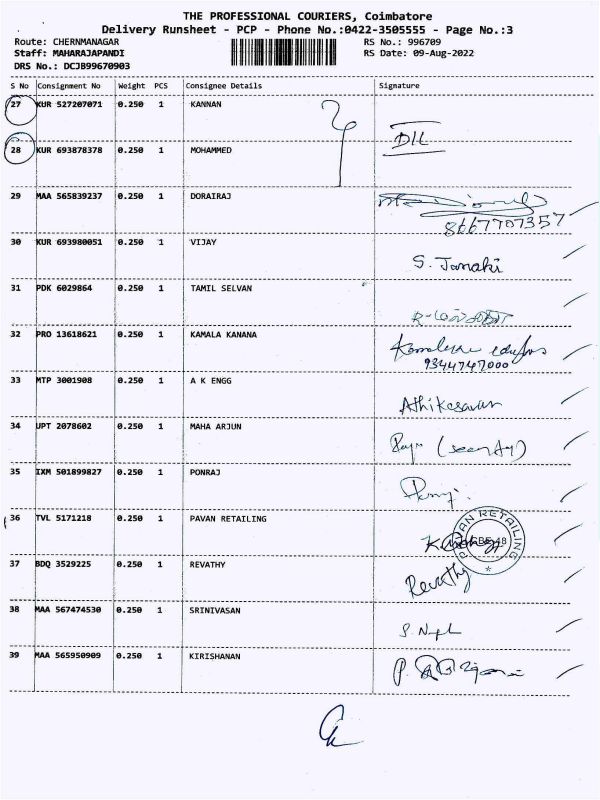 THE PROFESSIONAL COURIERS, Coimbatore
Delivery Runsheet - PCP - Phone No.:0422-3505555 - Page No.:3
Route: CHERNMANAGAR RS No.: 996709
Staff: MAHARAJAPANDI RS Date: 09-Aug-2022
DRS No.: DCJB99670903
S No Consignment No Weight PCS Consignee Details Signature
27 KUR 527207071 0.250 1 KANNAN
DIL
28 KUR 693878378 0.250 1 MOHAMMED
29 MAA 565839237 0.250 1 DORAIRAJ
8667707357
30 KUR 693980051 0.250 1 VIJAY
S. Janaki
31 PDK 6029864 0.250 1 TAMIL SELVAN
32 PRO 13618621 0.250 1 KAMALA KANANA
9344747000
33 MTP 3001908 0.250 1 A K ENGG
Athikesavan
34 UPT 2078602 0.250 1 MAHA ARJUN
35 IXM 501899827 0.250 1 PONRAJ
36 TVL 5171218 0.250 1 PAVAN RETAILING
PAVAN RETAILING
37 BDQ 3529225 0.250 1 REVATHY
Revathy
38 MAA 567474530 0.250 1 SRINIVASAN
39 MAA 565950909 0.250 1 KIRISHANAN